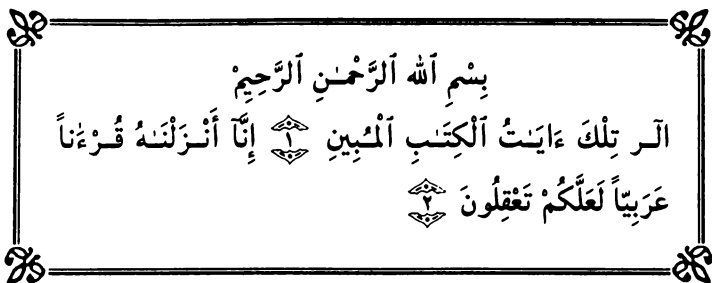 بِسْمِ ٱللهِ ٱلرَّحْمَـٰنِ ٱلرَّحِيمْ
الٓـر تِلْكَ ءَايَـٰتُ ٱلْكِتَـٰبِ ٱلْمُبِينِ ١ إِنَّآ أَنْـزَلْنَـٰهُ قُـرْءَٰناً
عَرَبِيّاً لَعَلَّكُمْ تَعْقِلُونَ ٢